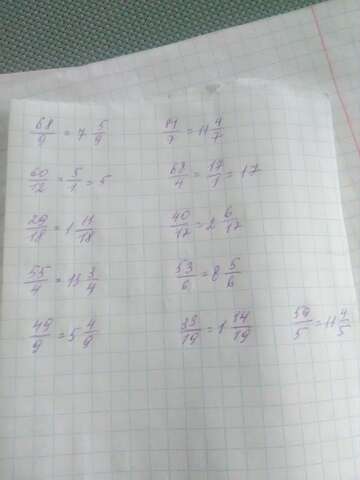 68/9 = 7 5/9 81/7 = 11 4/7
60/12 = 5/1 = 5 68/4 = 17/1 = 17
29/18 = 1 11/18 40/17 = 2 6/17
55/4 = 13 3/4 53/6 = 8 5/6
49/9 = 5 4/9 33/19 = 1 14/19 59/5 = 11 4/5